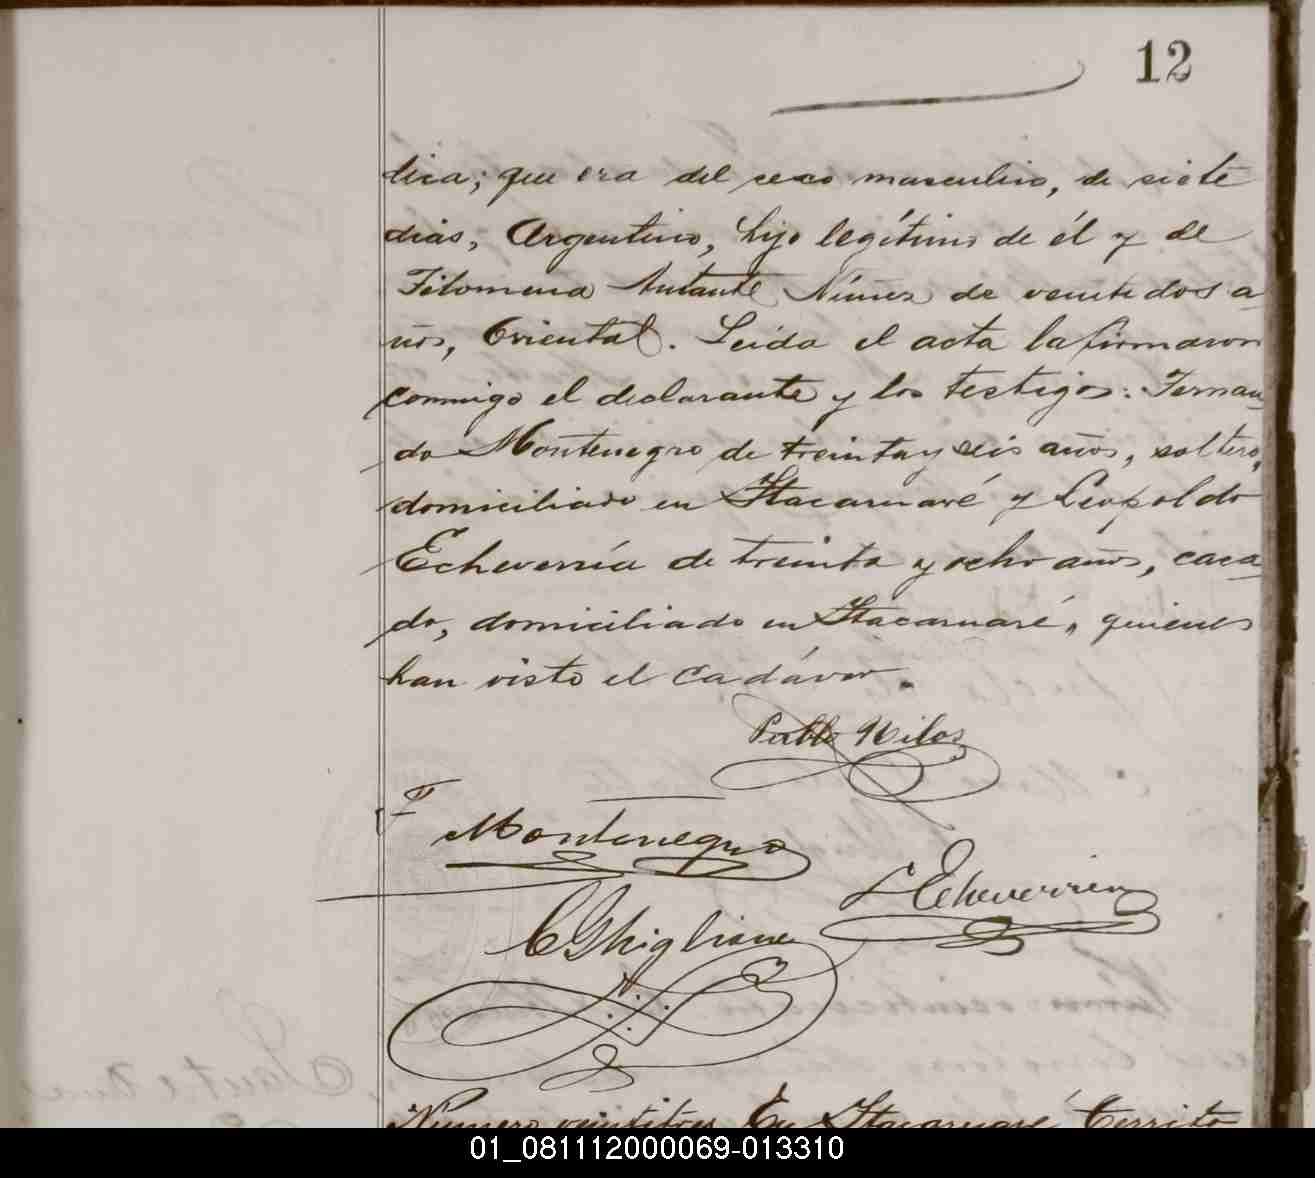 12
dica; que era del sexo masculino, de siete
dias, Argentino, hijo legítimo de él y de
Filomena Núñez de veintidos a-
ños, Oriental. Leida el acta la firmaron
conmigo el declarante y los testigos: Fernan-
do Montenegro de treinta y seis años, soltero,
domiciliado en Itacaruaré y Leopoldo
Echeverría de treinta y ocho años, casa-
do, domiciliado en Itacaruaré, quienes
han visto el cadáver.
Pablo
F Montenegro
L Echeverria
C Ghigliane
Número veintitres En Itacaruaré Territo
01_081112000069-013310